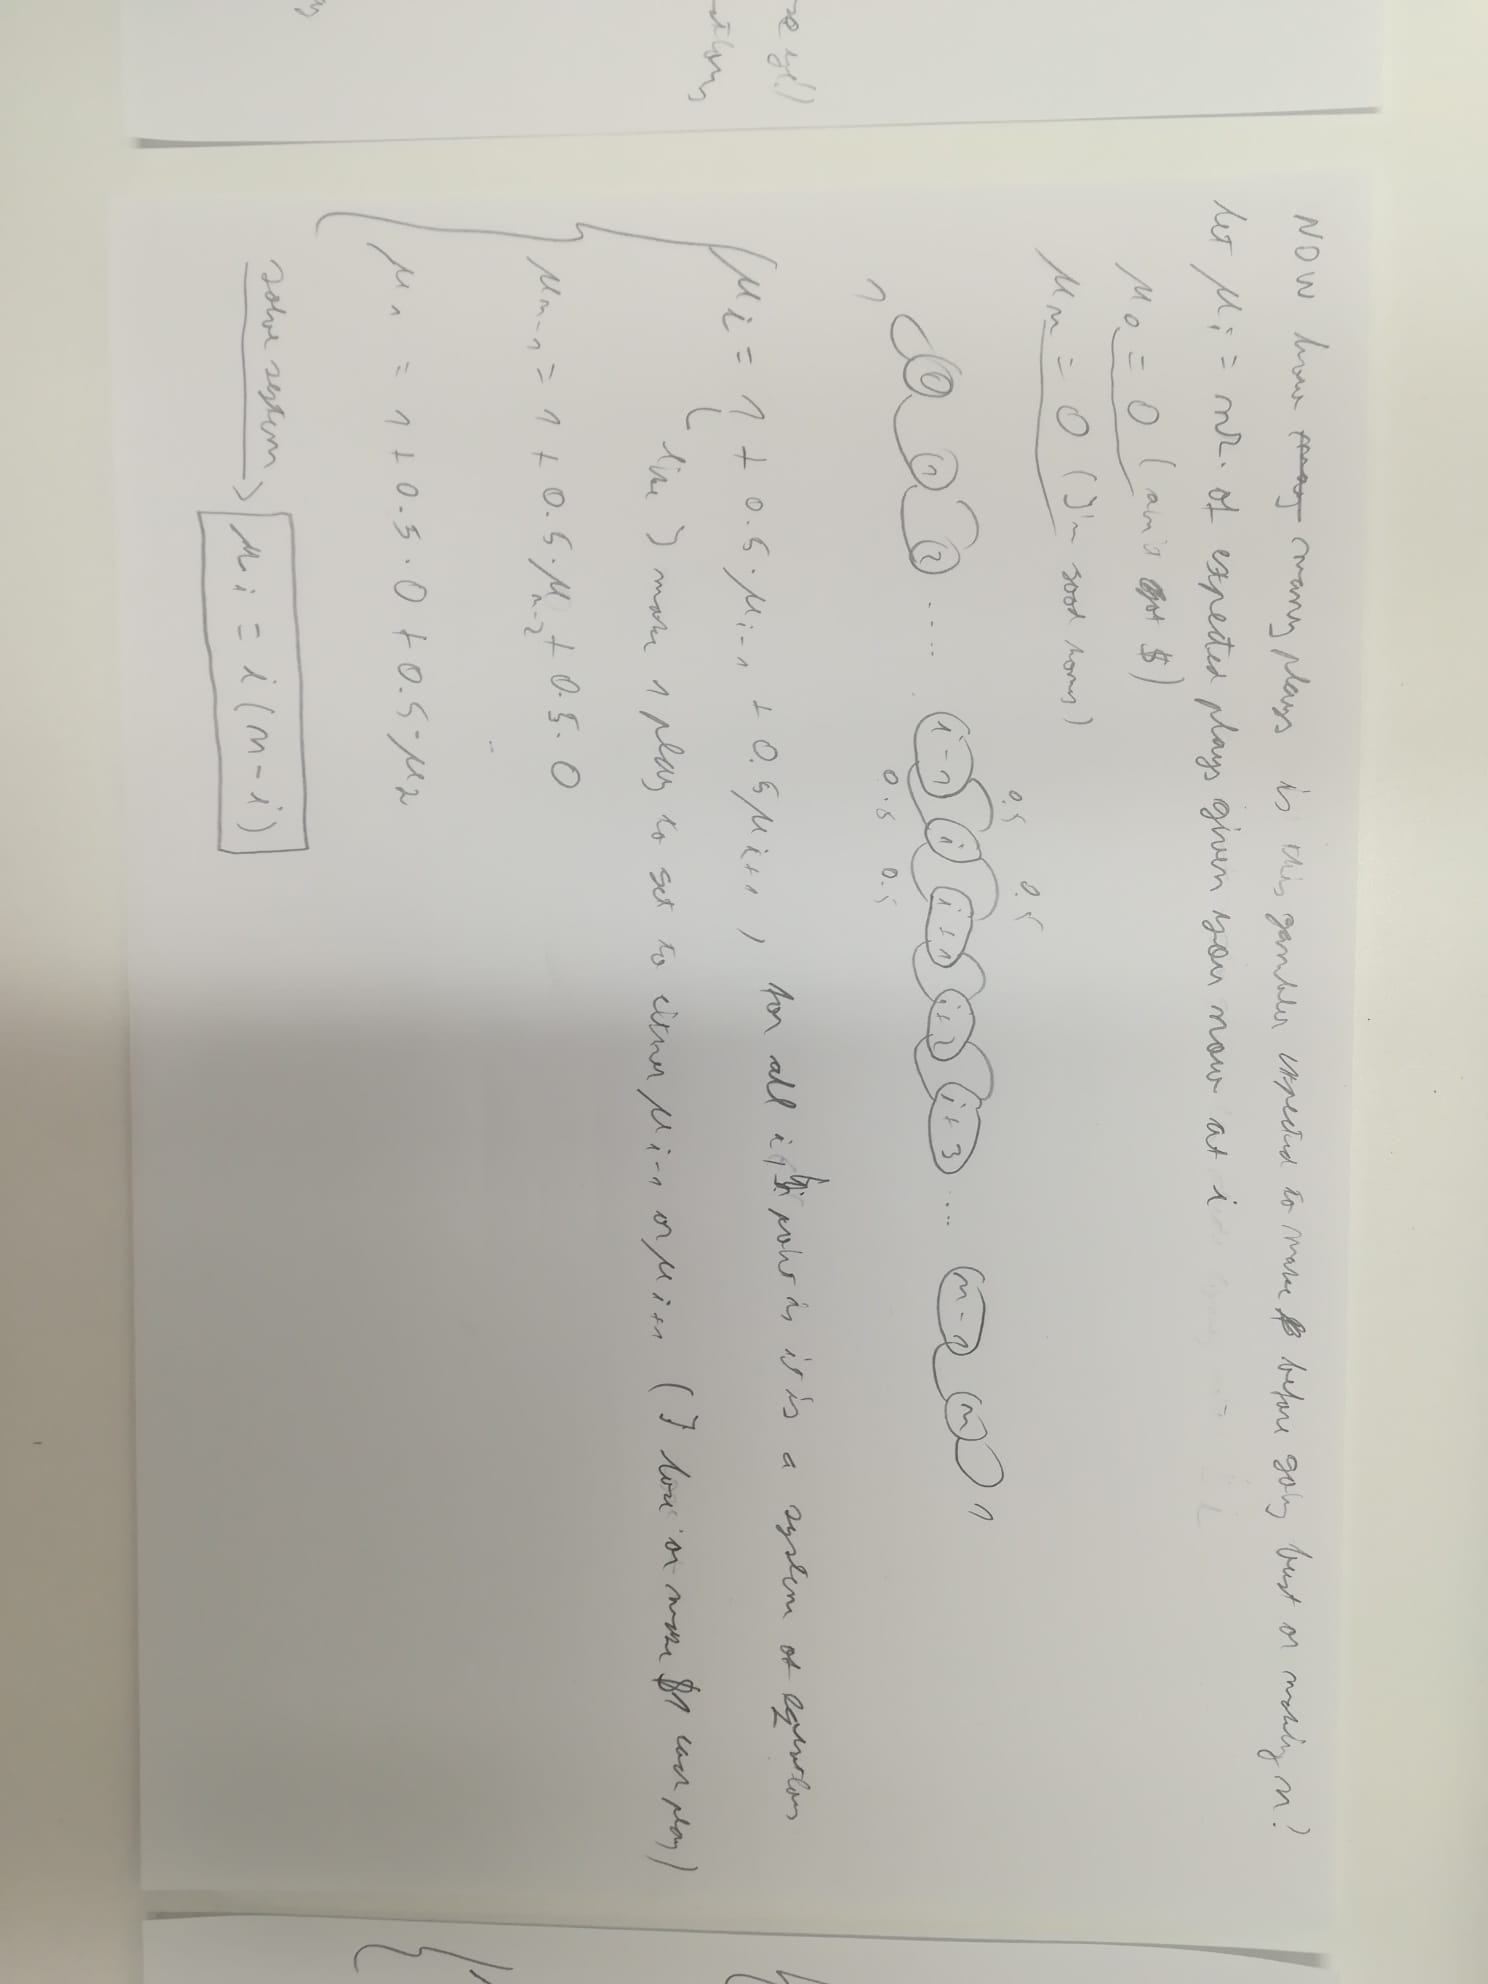 NOW how many plays is this gambler expected to make before going bust or making n?
let μi = nr. of expected plays given you now at i
μ0 = 0 (ain't got $)
μn = 0 (I'm good homes)
0.5 0.5
0 1 2 .... i-1 i i+1 i+2 i+3 ... n-1 n 1
1 0.5 0.5
μi = 1 + 0.5·μi-1 + 0.5μi+1, for all i, point is it is a system of equations
like I make 1 play to get to either μi-1 or μi+1 (I lose or make $1 each play)
μn-1 = 1 + 0.5·μn-2 + 0.5·0
μ1 = 1 + 0.5·0 + 0.5·μ2
solve system > μi = i(n-i)